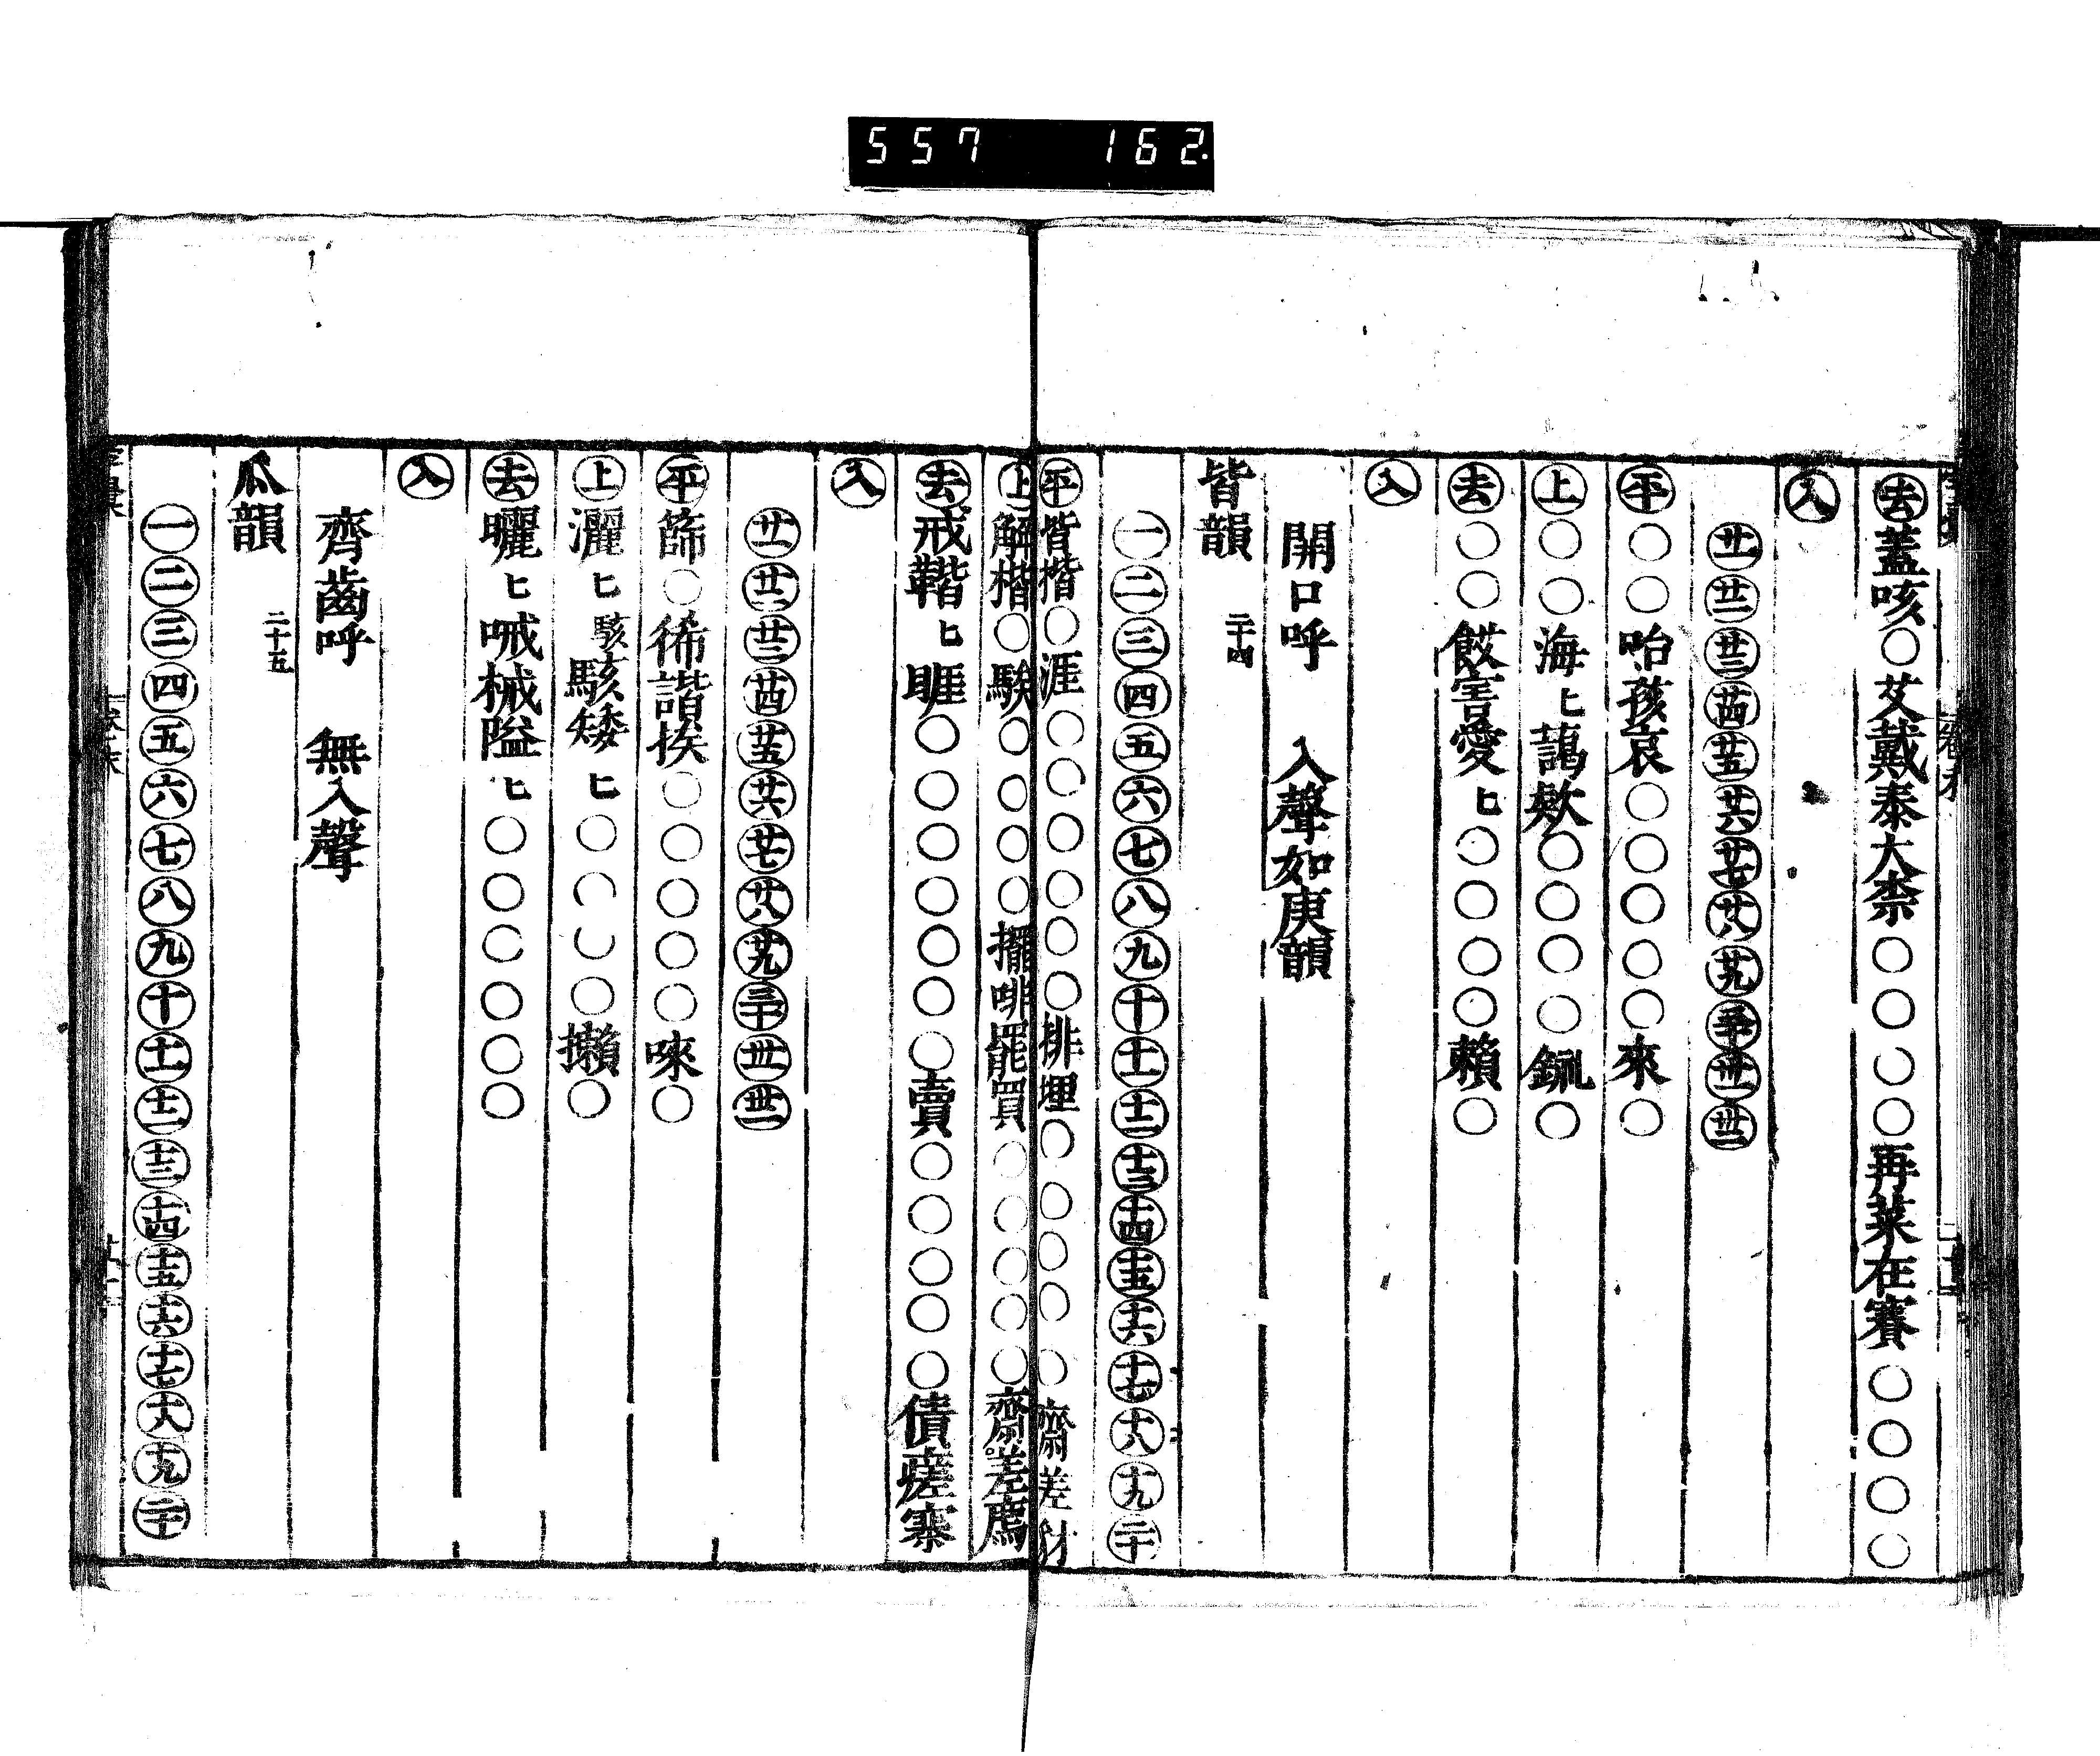 557 162.
㊀去蓋咳○艾戴泰大柰○○○○再菜在賽○○○○
入
廿一廿二廿三廿四廿五廿六廿七廿八廿九三十卅一卅二
平○○咍孩哀○○○○○來○
上○○海𠤎藹欸○○○○䚅○
去○○餀害愛𠤎○○○○賴○
入
開口呼 入聲如庚韻
皆韻 二十四
一二三四五六七八九十十一十二十三十四十五十六十七十八十九二十
平皆揩○涯○○○○○○排埋○○○○○齋差豺
上解楷○騃○○○○擺啡罷買○○○○○齋差廌
去戒鞜𠤎睚○○○○○○○賣○○○○○債瘥寨
入
廿一廿二廿三廿四廿五廿六廿七廿八廿九三十卅一卅二
平篩○俙諧挨○○○○○唻○
上灑𠤎駭駭矮𠤎○○○○攋○
去曬𠤎喊械隘𠤎○○○○○○
入
齊齒呼 無入聲
瓜韻 二十五
一二三四五六七八九十十一十二十三十四十五十六十七十八十九二十